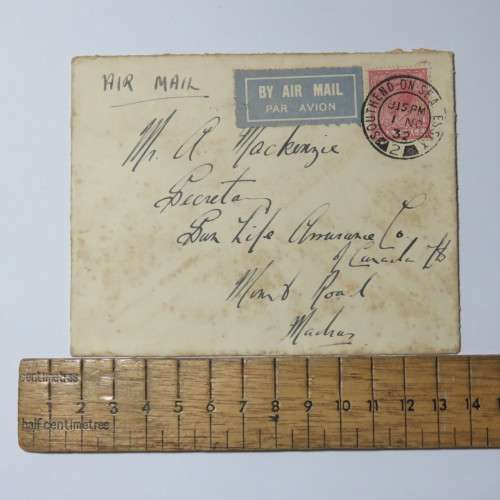 AIR MAIL
BY AIR MAIL
PAR AVION
SOUTHEND-ON-SEA. ESSEX
PM
1 NO
32
2
Mr. A. Mackenzie
Secretary
Sun Life Assurance Co.
of Canada Ltd
Mount Road
Madras
centimetres
1 2 3 4 5 6 7 8 9 10 11 12 13 14
half centimetres